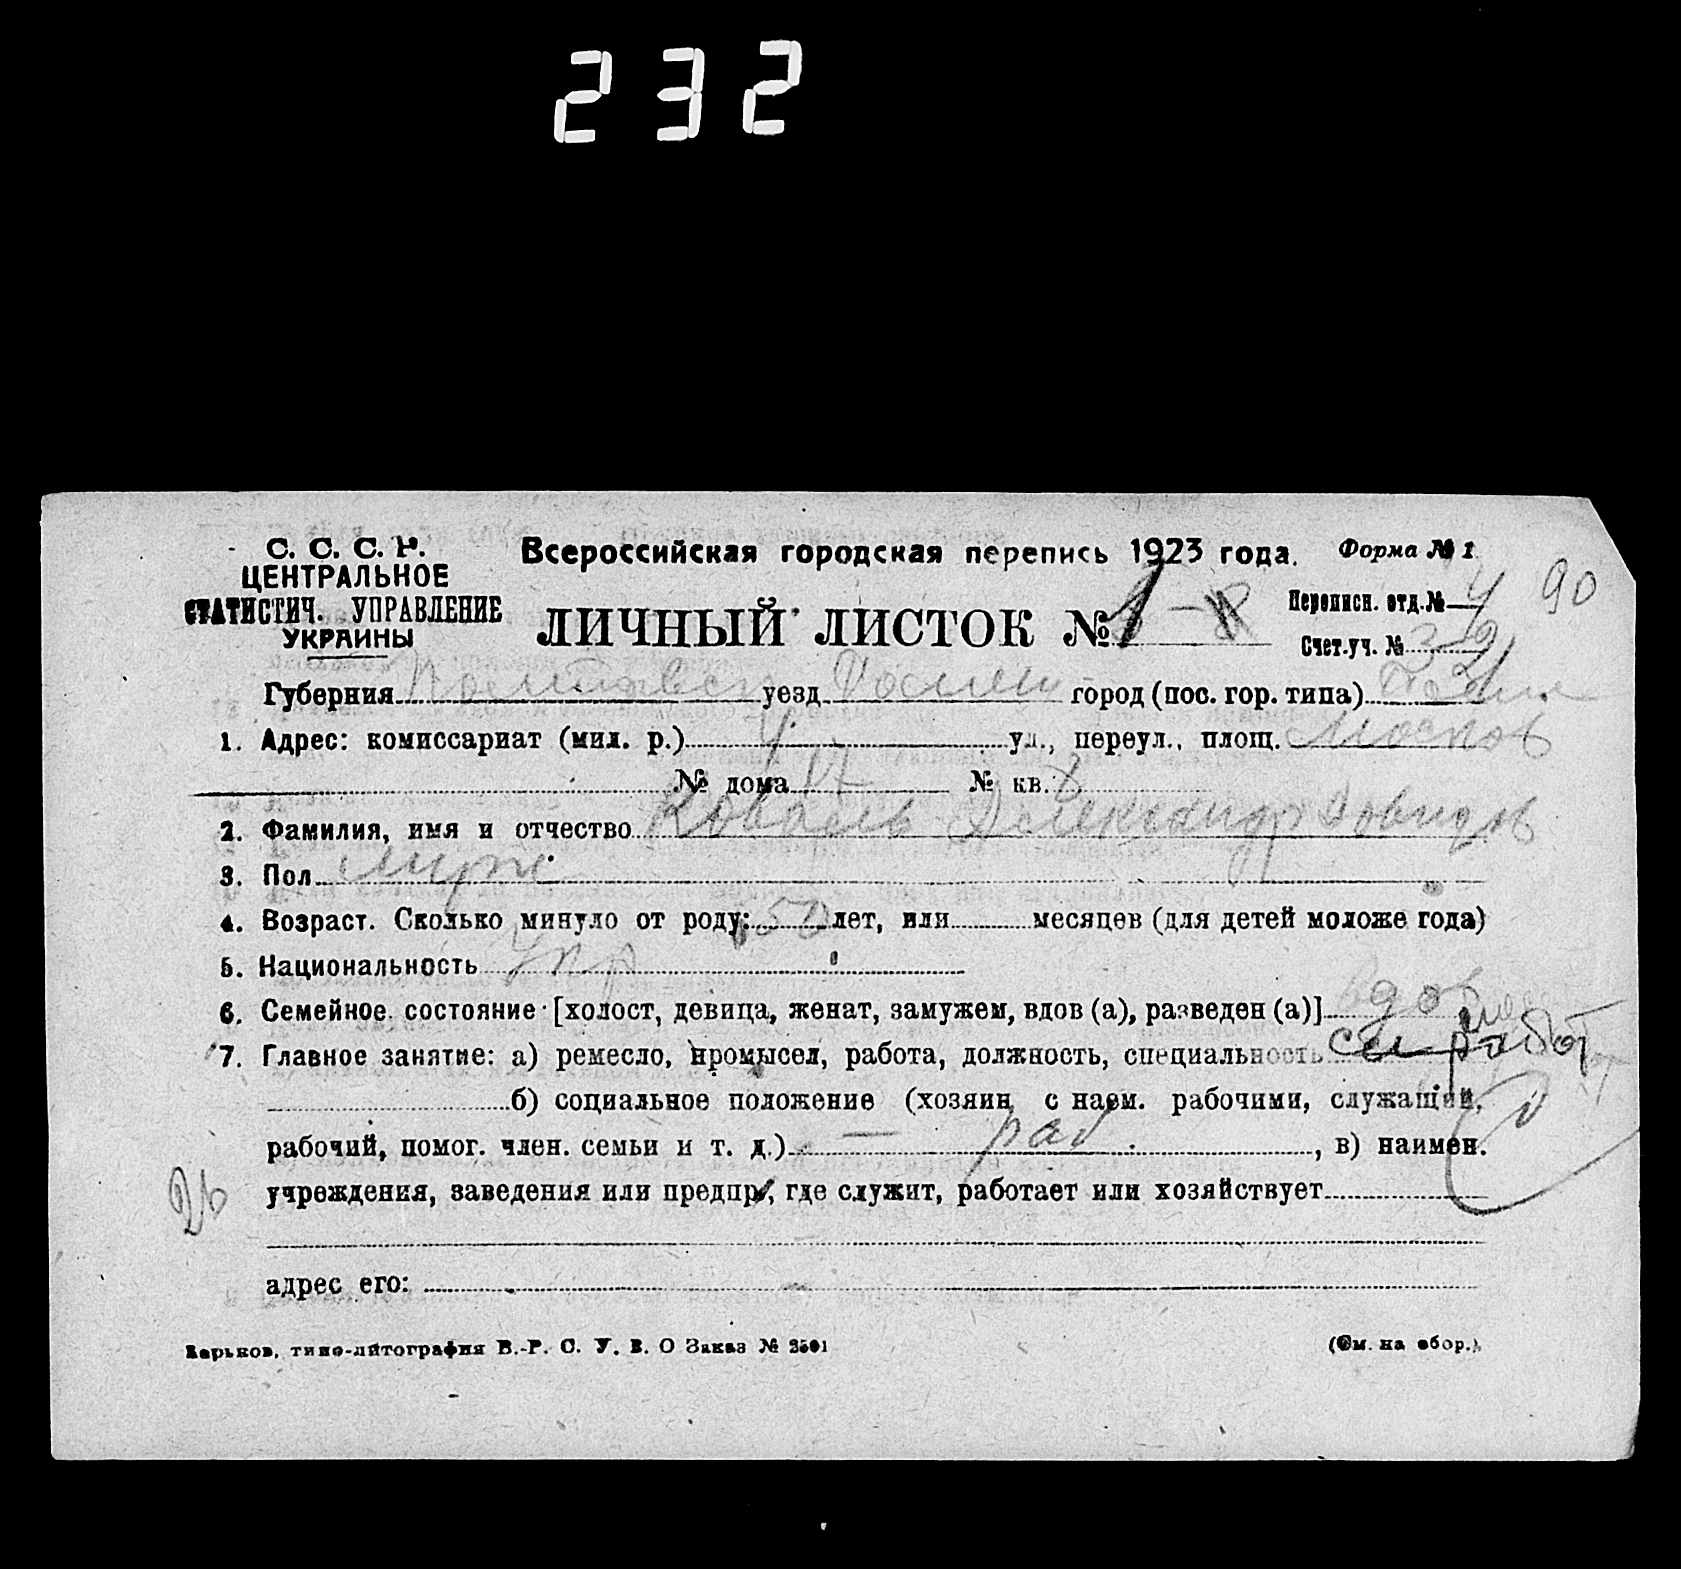 232
С. С. С. Р.
ЦЕНТРАЛЬНОЕ
СТАТИСТИЧ. УПРАВЛЕНИЕ
УКРАИНЫ
Всероссийская городская перепись 1923 года.
Форма № 1
ЛИЧНЫЙ ЛИСТОК № 1
Переписн. отд. № 4
90
Счет.уч. №
Губерния Полтавск уезд город (пос. гор. типа)
1. Адрес: комиссариат (мил. р.) 4 ул., переул., площ. Москов
№ дома 17 № кв.
2. Фамилия, имя и отчество Коваль Александр Довидов
3. Пол муж
4. Возраст. Сколько минуло от роду: 50 лет, или месяцев (для детей моложе года)
5. Национальность Укр
6. Семейное состояние [холост, девица, женат, замужем, вдов (а), разведен (а)] вдов
7. Главное занятие: а) ремесло, промысел, работа, должность, специальность
б) социальное положение (хозяин с наем. рабочими, служащий,
рабочий, помог. член. семьи и т. д.) раб , в) наимен.
учреждения, заведения или предпр., где служит, работает или хозяйствует
адрес его:
Харьков, типо-литография В.-Р. С. У. В. О Заказ № 2501
(См. на обор.)